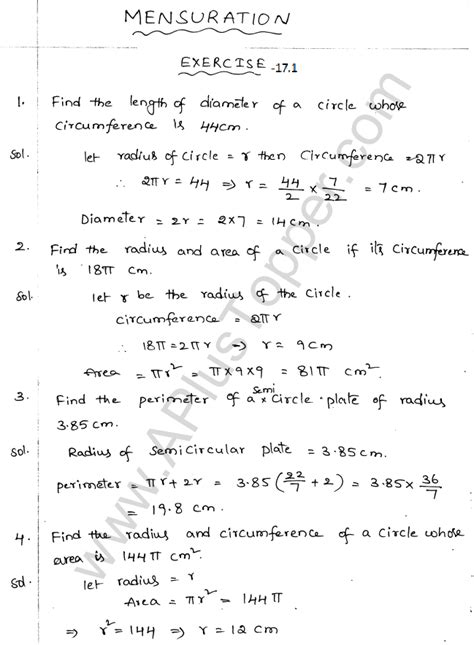 MENSURATION
EXERCISE -17.1
1. Find the length of diameter of a circle whose
circumference is 44cm.
Sol. let radius of circle = r then Circumference = 2πr
∴ 2πr = 44 ⇒ r = 44/2 × 7/22 = 7cm.
Diameter = 2r = 2×7 = 14cm.
2. Find the radius and area of a circle if its circumference
is 18π cm.
Sol. let r be the radius of the circle.
circumference = 2πr
∴ 18π = 2πr ⇒ r = 9cm
Area = πr² = π×9×9 = 81π cm²
3. Find the perimeter of a semi circle plate of radius
3.85cm.
Sol. Radius of semicircular plate = 3.85cm.
perimeter = πr + 2r = 3.85(22/7 + 2) = 3.85 × 36/7
= 19.8 cm.
4. Find the radius and circumference of a circle whose
area is 144π cm².
Sol. let radius = r
Area = πr² = 144π
⇒ r² = 144 ⇒ r = 12cm
www.APlusTopper.com